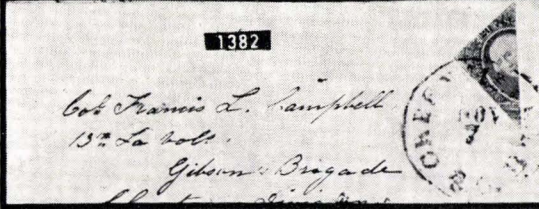 1382
Col Francis L. Campbell
13th La Vols.
Gibson's Brigade
NOV
3